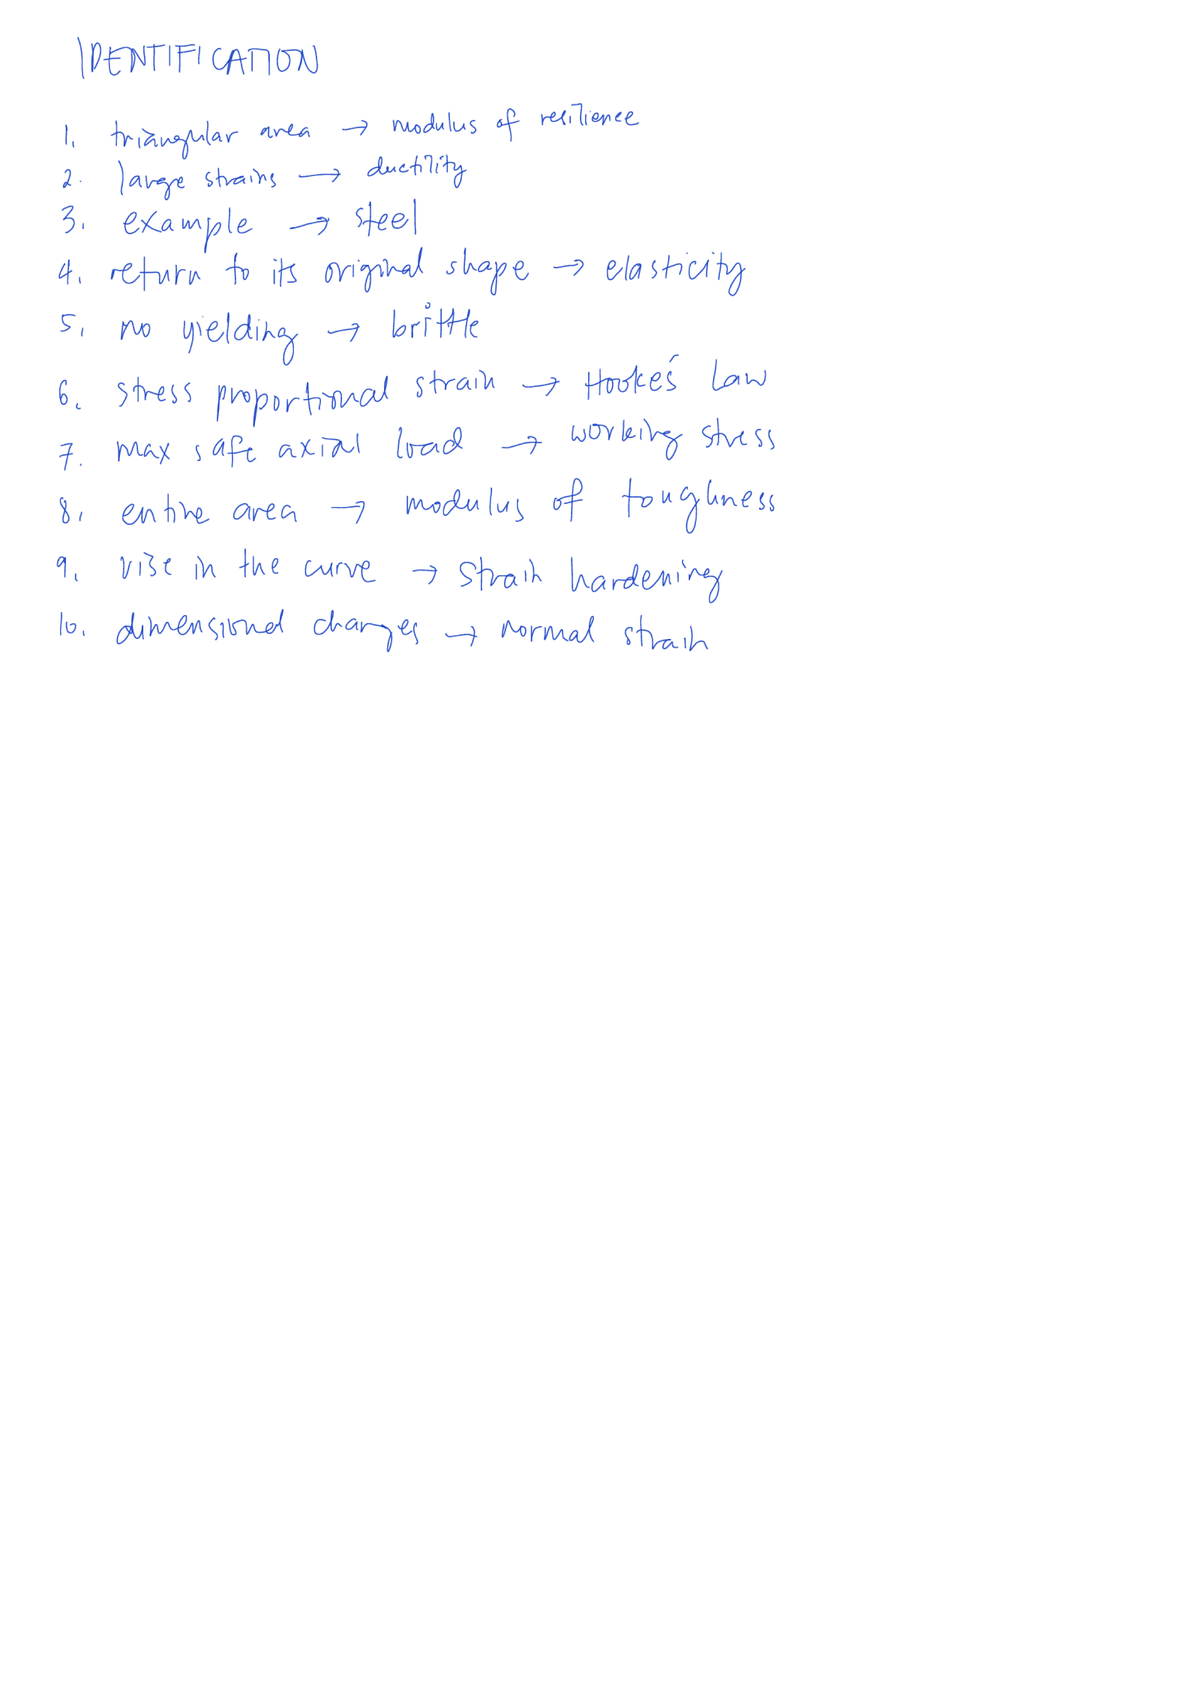 IDENTIFICATION
1. triangular area → modulus of resilience
2. large strains → ductility
3. example → steel
4. return to its original shape → elasticity
5. no yielding → brittle
6. stress proportional strain → Hooke's Law
7. max safe axial load → working stress
8. entire area → modulus of toughness
9. rise in the curve → strain hardening
10. dimensional changes → normal strain